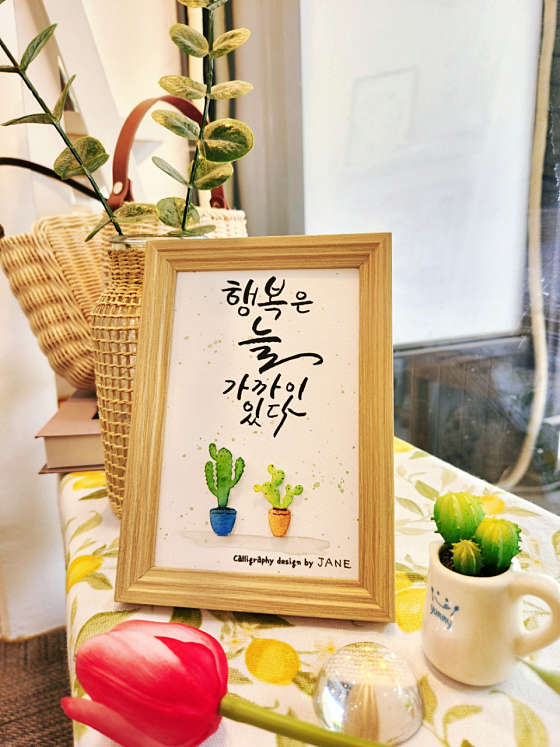 행복은
늘
가까이
있다
Calligraphy design by JANE
yummy